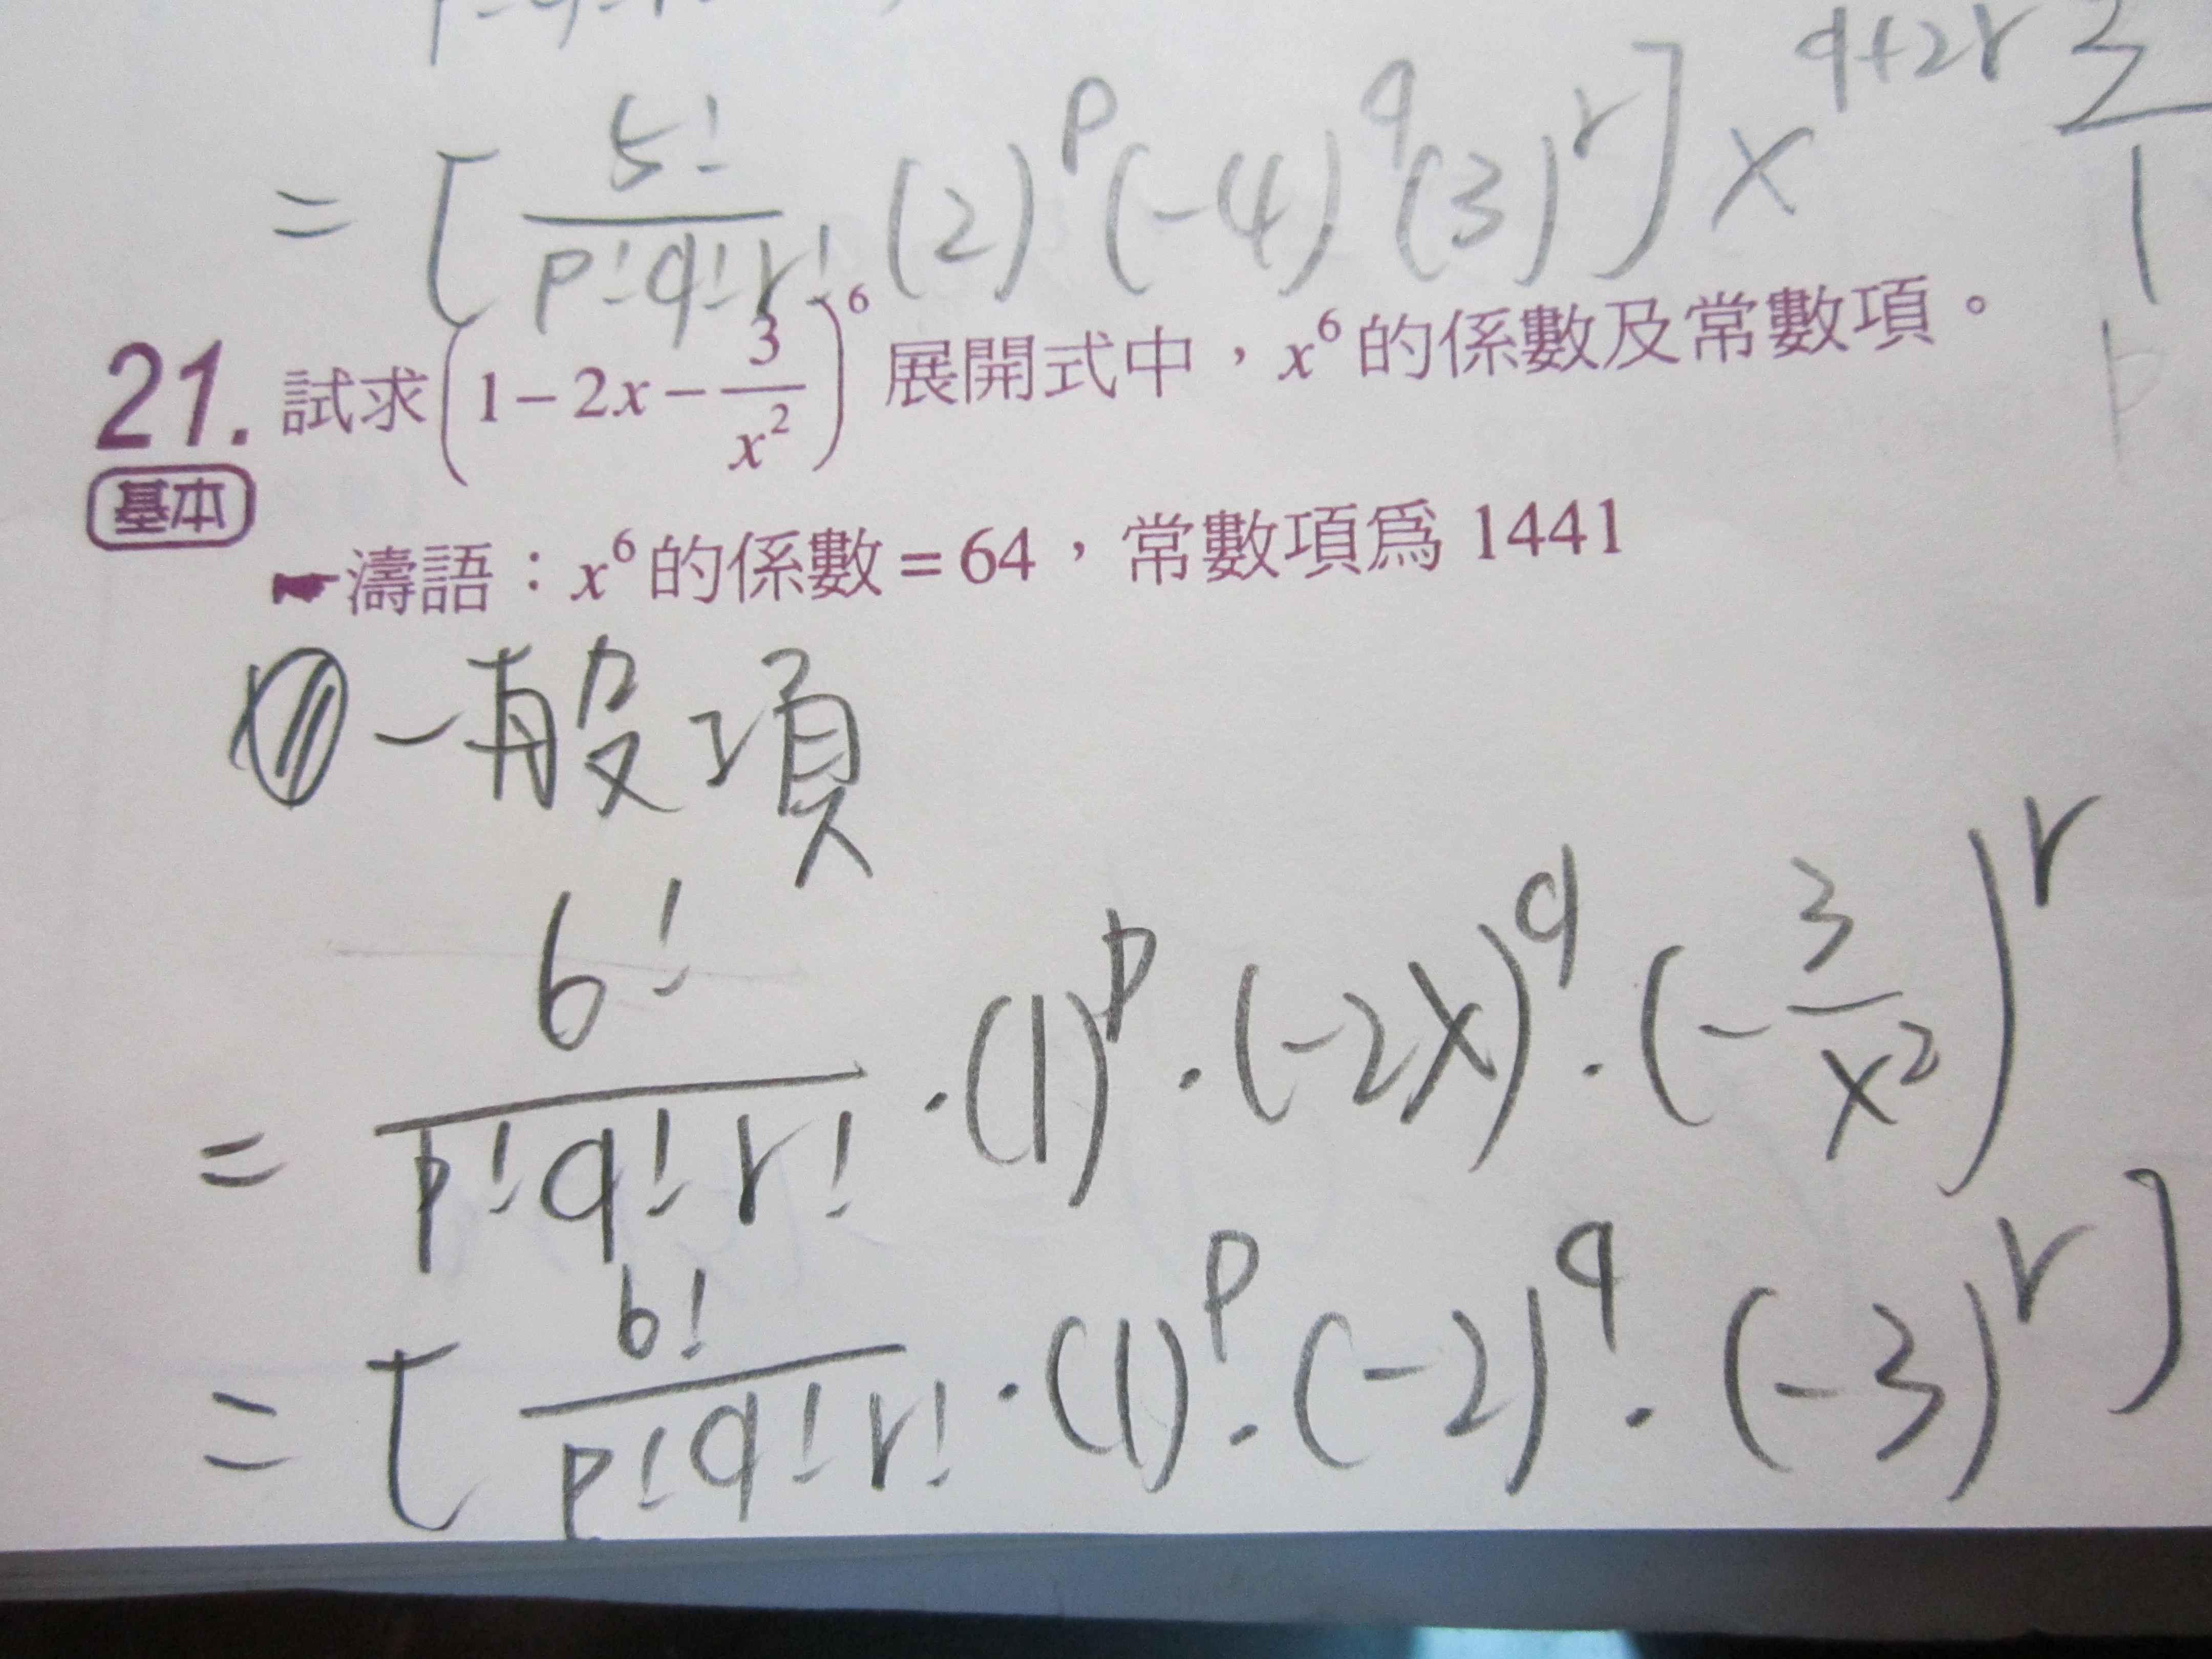 = [ 5! / p!q!r! (2)^p (-4)^q (3)^r ] x^{q+2r}
21. 試求 (1 − 2x − 3/x²)⁶ 展開式中，x⁶ 的係數及常數項。
基本
濤語：x⁶ 的係數 = 64，常數項爲 1441
一般項
= 6! / p!q!r! · (1)^p · (-2x)^q · (-3/x²)^r
= [ 6! / p!q!r! · (1)^p · (-2)^q · (-3)^r ]